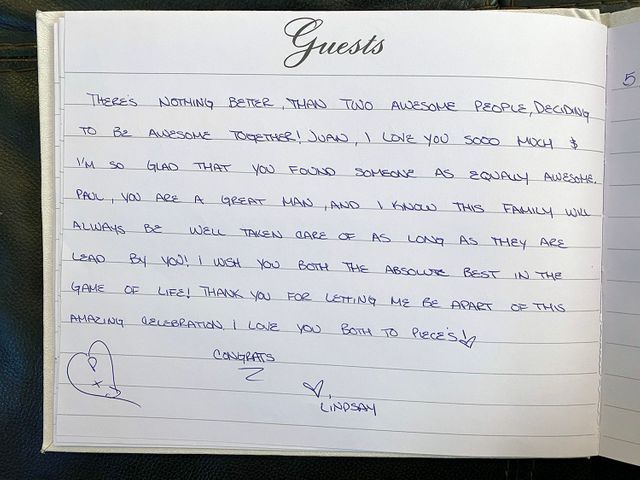 Guests
THERE'S NOTHING BETTER, THAN TWO AWESOME PEOPLE, DECIDING
TO BE AWESOME TOGETHER! JUAN, I LOVE YOU SOOO MUCH &
I'M SO GLAD THAT YOU FOUND SOMEONE AS EQUALLY AWESOME.
PAUL, YOU ARE A GREAT MAN, AND I KNOW THIS FAMILY WILL
ALWAYS BE WELL TAKEN CARE OF AS LONG AS THEY ARE
LEAD BY YOU! I WISH YOU BOTH THE ABSOLUTE BEST IN THE
GAME OF LIFE! THANK YOU FOR LETTING ME BE APART OF THIS
AMAZING CELEBRATION, I LOVE YOU BOTH TO PIECE'S! ♡
CONGRATS
♡,
LINDSAY
5